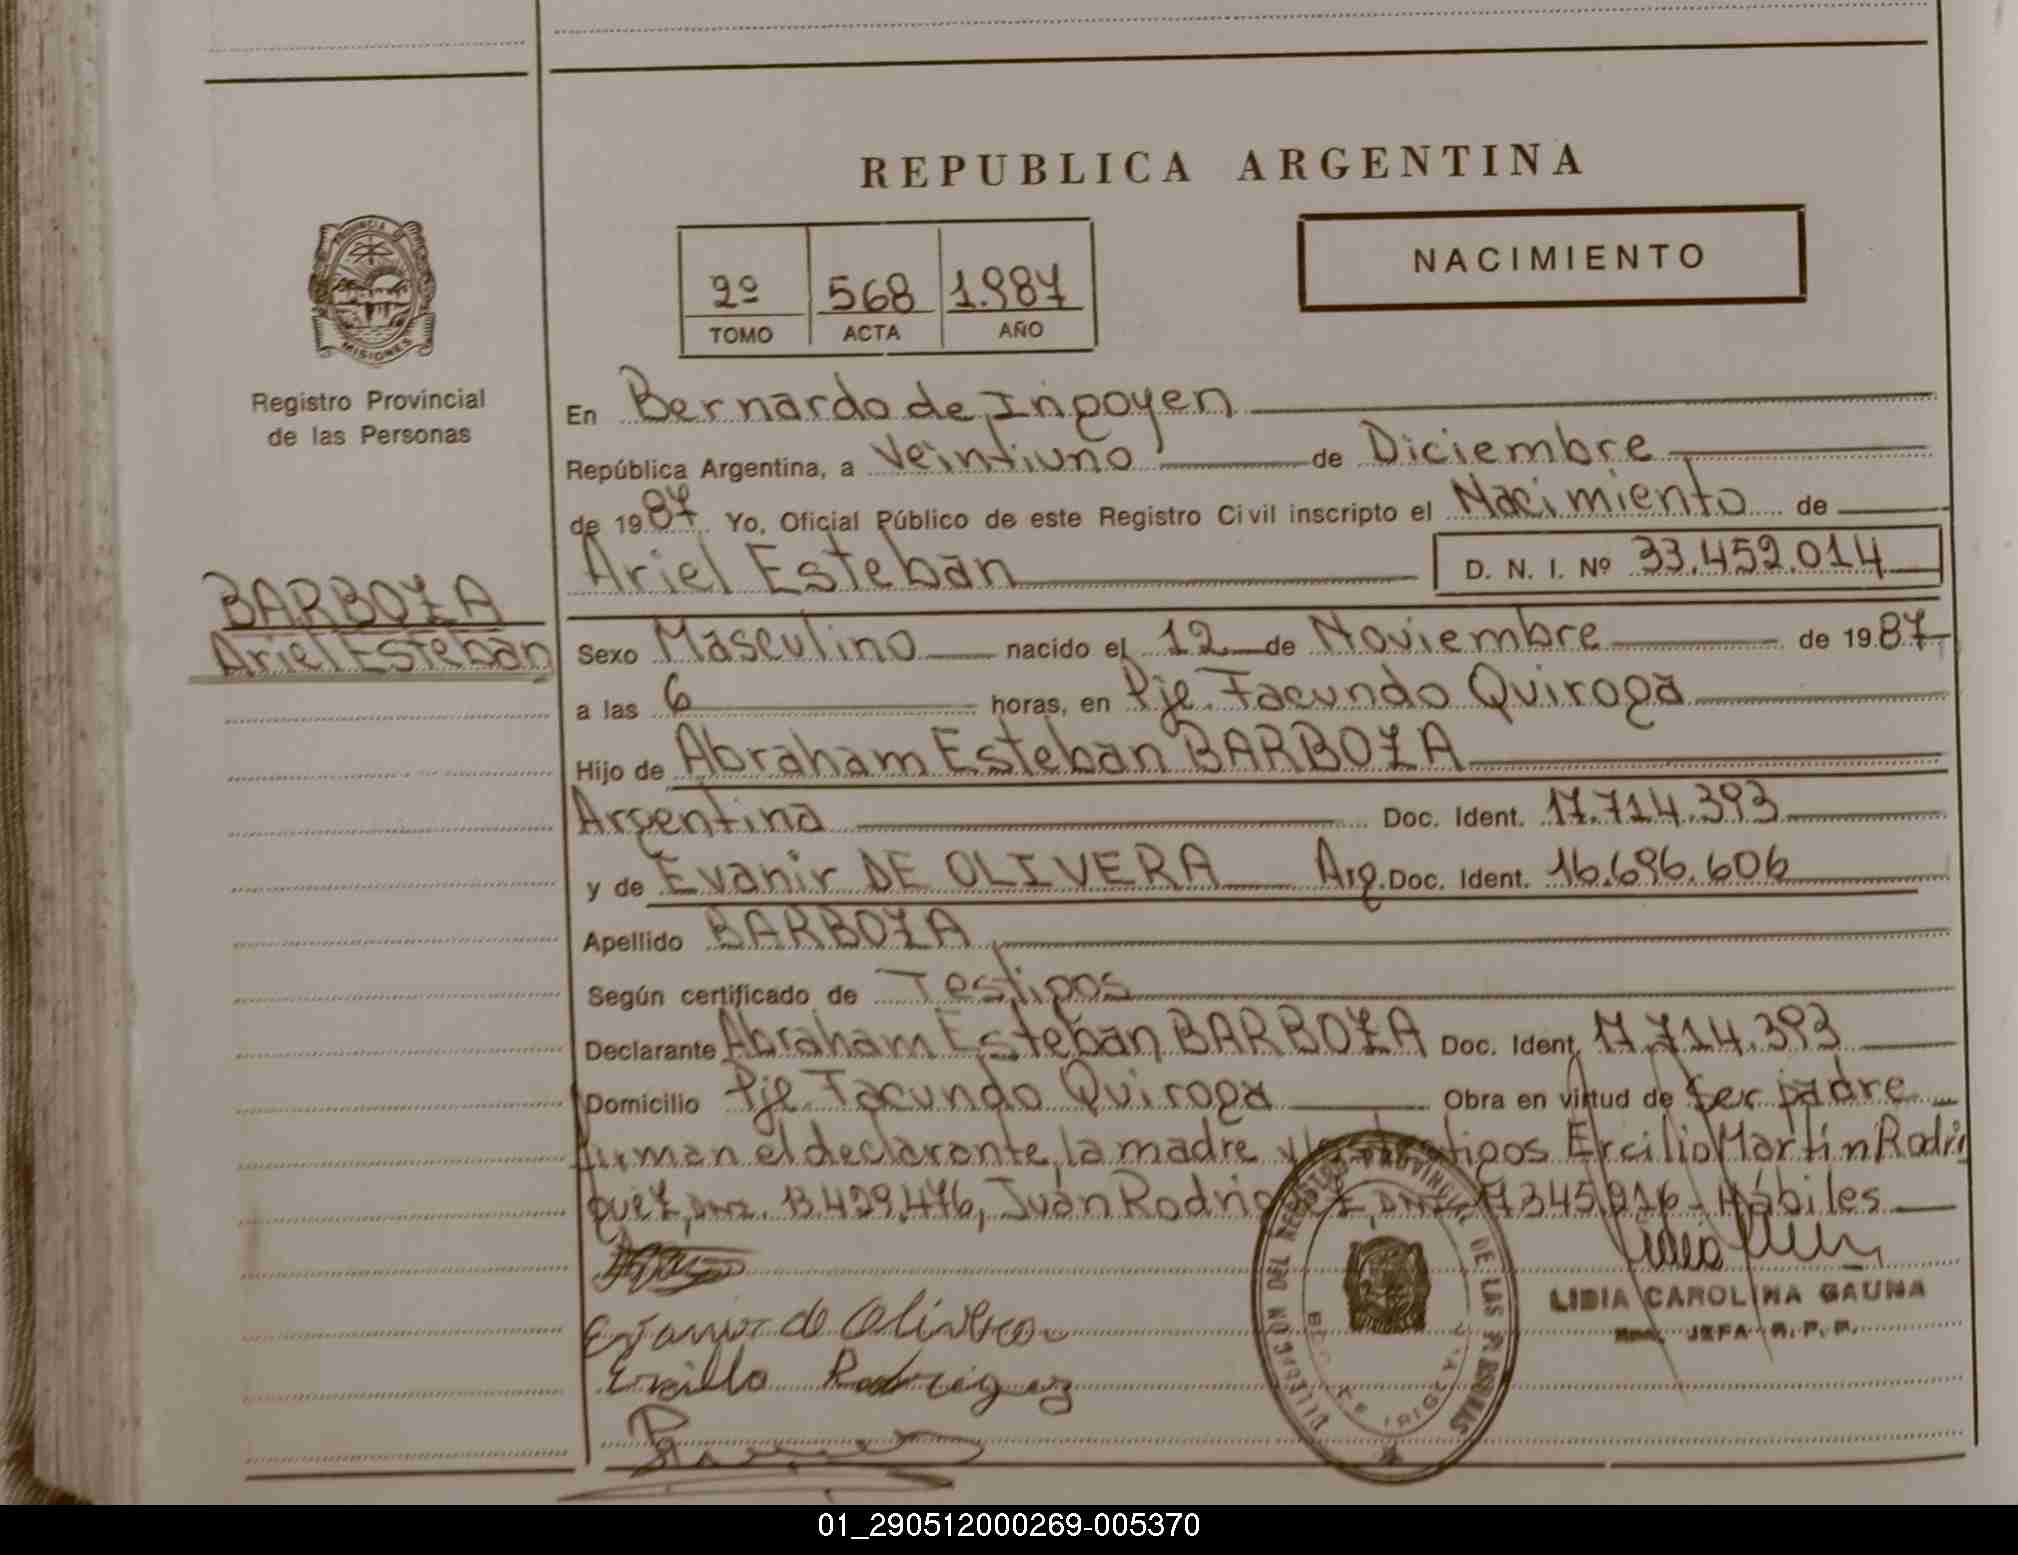 REPUBLICA ARGENTINA
NACIMIENTO
2º 568 1.987
TOMO ACTA AÑO
PROVINCIA DE
MISIONES
Registro Provincial
de las Personas
En Bernardo de Irigoyen
República Argentina, a Veintiuno de Diciembre
de 1987 Yo, Oficial Público de este Registro Civil inscripto el Nacimiento de
Ariel Esteban D. N. I. Nº 33.452.014
BARBOZA
Ariel Esteban
Sexo Masculino nacido el 12 de Noviembre de 1987
a las 6 horas, en Pje. Facundo Quiroga
Hijo de Abraham Esteban BARBOZA
Argentina Doc. Ident. 17.714.393
y de Evanir DE OLIVERA Arg. Doc. Ident. 16.696.606
Apellido BARBOZA
Según certificado de Testigos
Declarante Abraham Esteban BARBOZA Doc. Ident. 17.714.393
Domicilio Pje. Facundo Quiroga Obra en virtud de ser padre
firman el declarante, la madre y los testigos Ercilio Martín Rodri
guez, DNI. 13.429.476, Juán Rodriguez, DNI. Hábiles
Evanir de Olivera
Ercilio Rodriguez
DIRECCION DEL REGISTRO PROVINCIAL DE LAS PERSONAS
LIDIA CAROLINA GAUNA
JEFA R. P. P.
01_290512000269-005370